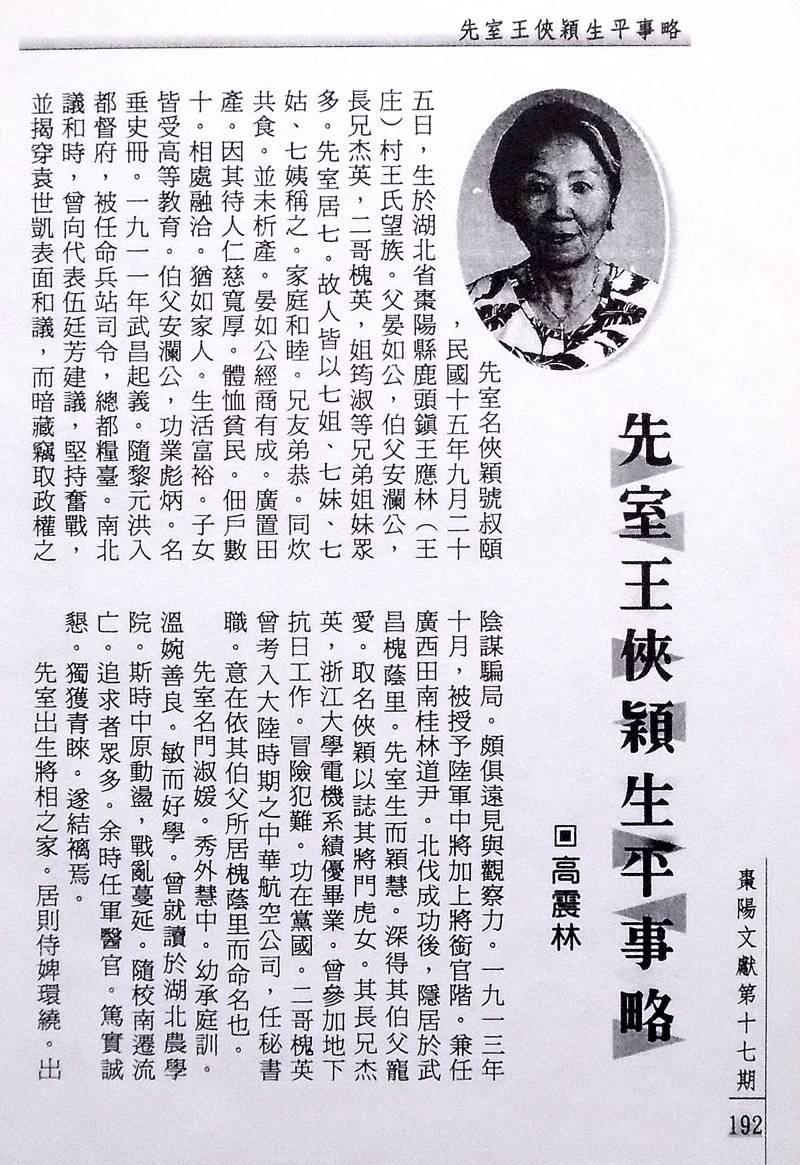 先室王俠穎生平事略
先室王俠穎生平事略
回高震林
先室名俠穎號叔頤
，民國十五年九月二十
五日，生於湖北省棗陽縣鹿頭鎮王應林（王
庄）村王氏望族。父晏如公，伯父安瀾公，
長兄杰英，二哥槐英，姐筠淑等兄弟姐妹眾
多。先室居七。故人皆以七姐、七妹、七
姑、七姨稱之。家庭和睦。兄友弟恭。同炊
共食。並未析產。晏如公經商有成。廣置田
產。因其待人仁慈寬厚。體恤貧民。佃戶數
十。相處融洽。猶如家人。生活富裕。子女
皆受高等教育。伯父安瀾公，功業彪炳。名
垂史冊。一九一一年武昌起義。隨黎元洪入
都督府，被任命兵站司令，總都糧臺。南北
議和時，曾向代表伍廷芳建議，堅持奮戰，
並揭穿袁世凱表面和議，而暗藏竊取政權之
陰謀騙局。頗俱遠見與觀察力。一九一三年
十月，被授予陸軍中將加上將銜官階。兼任
廣西田南桂林道尹。北伐成功後，隱居於武
昌槐蔭里。先室生而穎慧。深得其伯父寵
愛。取名俠穎以誌其將門虎女。其長兄杰
英，浙江大學電機系績優畢業。曾參加地下
抗日工作。冒險犯難。功在黨國。二哥槐英
曾考入大陸時期之中華航空公司，任秘書
職。意在依其伯父所居槐蔭里而命名也。
先室名門淑媛。秀外慧中。幼承庭訓。
溫婉善良。敏而好學。曾就讀於湖北農學
院。斯時中原動盪，戰亂蔓延。隨校南遷流
亡。追求者眾多。余時任軍醫官。篤實誠
懇。獨獲青睞。遂結褵焉。
先室出生將相之家。居則侍婢環繞。出
棗陽文獻第十七期
192